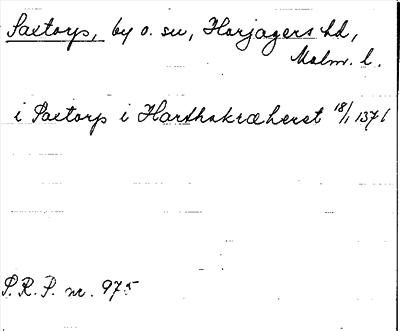 Saxtorps, by o. sn, Harjagers hd,
Malm. l.
i Saxtorp i Harthakræheret 18/1 1376
S.R.P. nr. 975